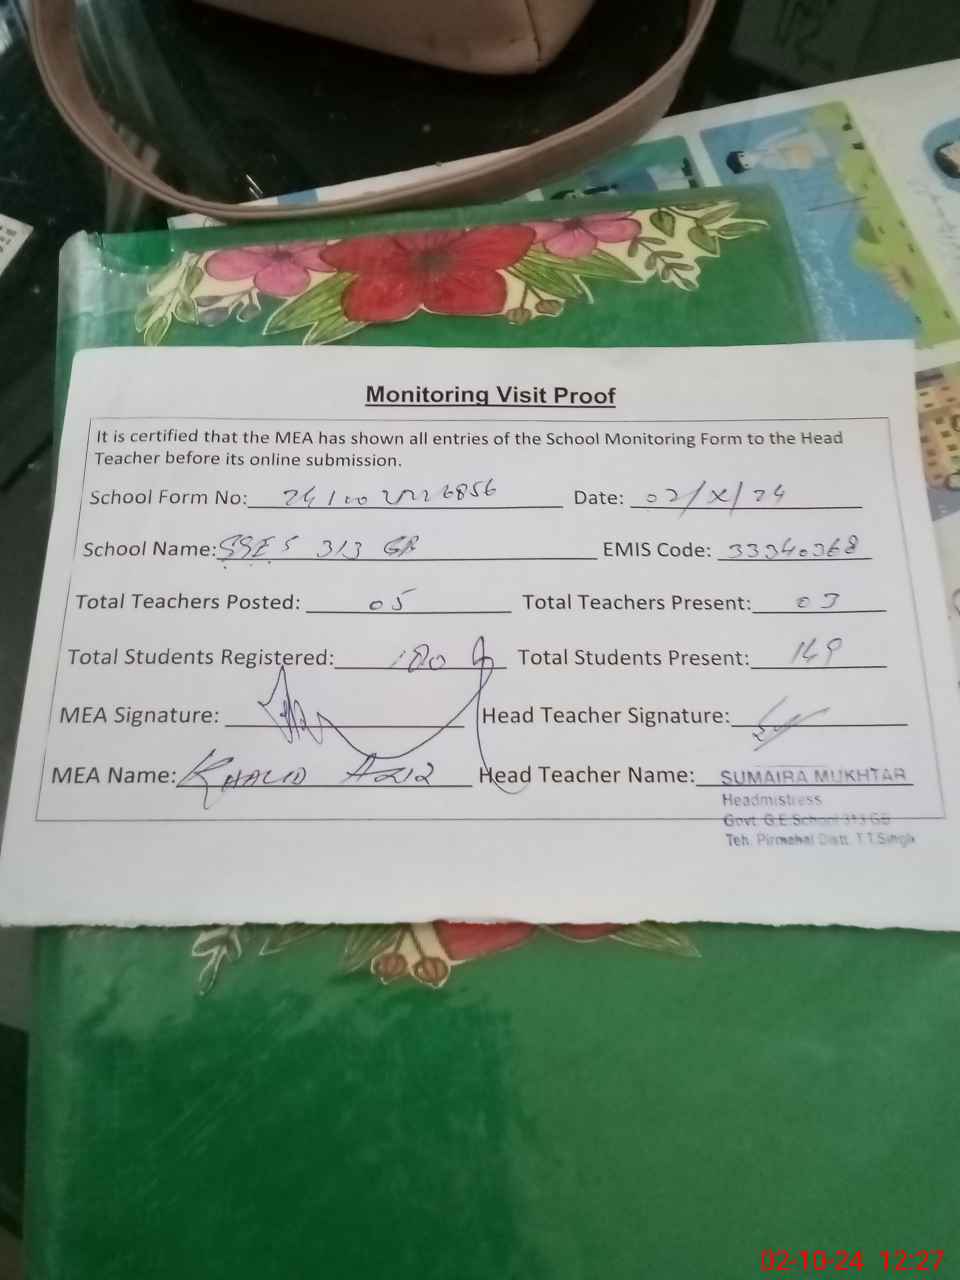 Monitoring Visit Proof
It is certified that the MEA has shown all entries of the School Monitoring Form to the Head
Teacher before its online submission.
School Form No: Date: 02/X/24
School Name: 313 GB EMIS Code: 33340368
Total Teachers Posted: 05 Total Teachers Present: 03
Total Students Registered: 180 Total Students Present: 149
MEA Signature: Head Teacher Signature:
MEA Name: KHALID AZIZ Head Teacher Name: SUMAIRA MUKHTAR
Headmistress
Govt. G.E.School 313 GB
Teh. Pirmahal Distt. T.T.Singh
02-10-24 12:27